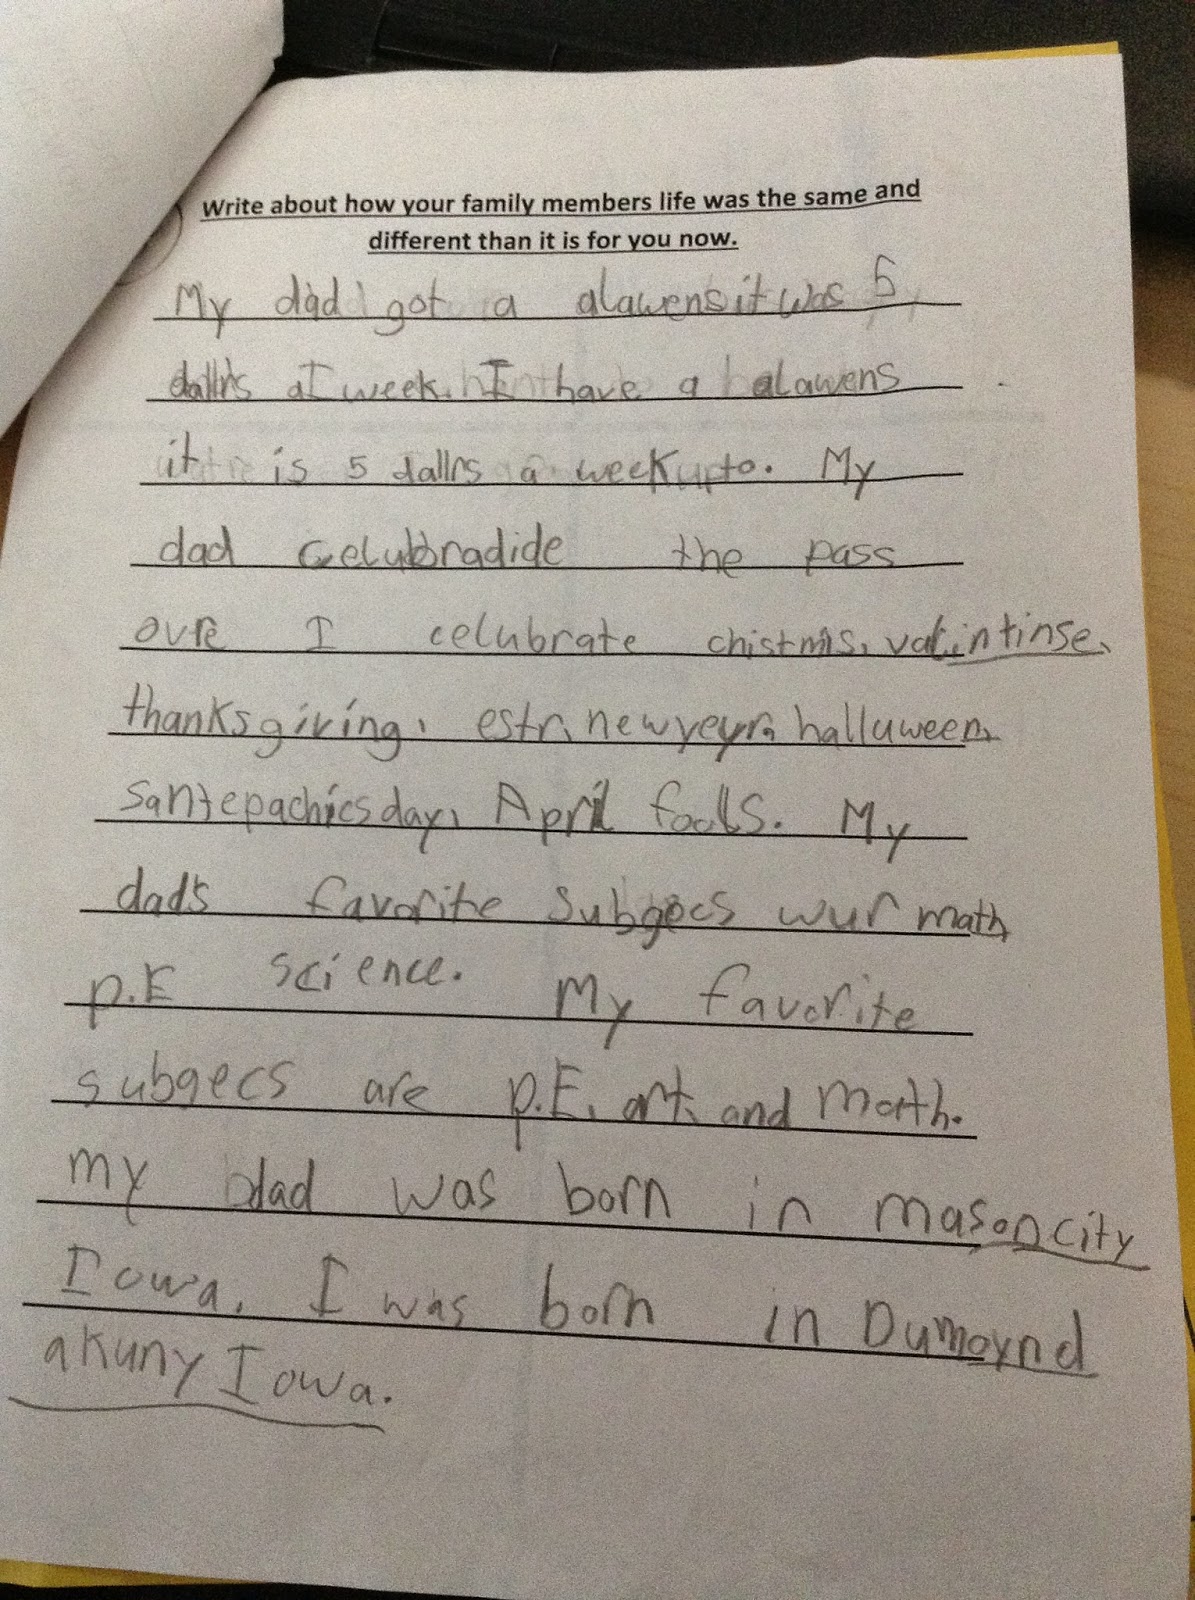 Write about how your family members life was the same and
different than it is for you now.
My dad got a alawens it was 5
dallrs a week. I have a alawens
it is 5 dallrs a week upto. My
dad celubradide the pass
ovre I celubrate chistmis, valintinse,
thanksgiving, estr, newyeyr, halluween,
santepachicsday, April fools. My
dad's favorite subgecs wur math,
p.E science. My favorite
subgecs are p.E, art, and math.
my dad was born in masoncity
Iowa. I was born in Dumoynd
akuny Iowa.